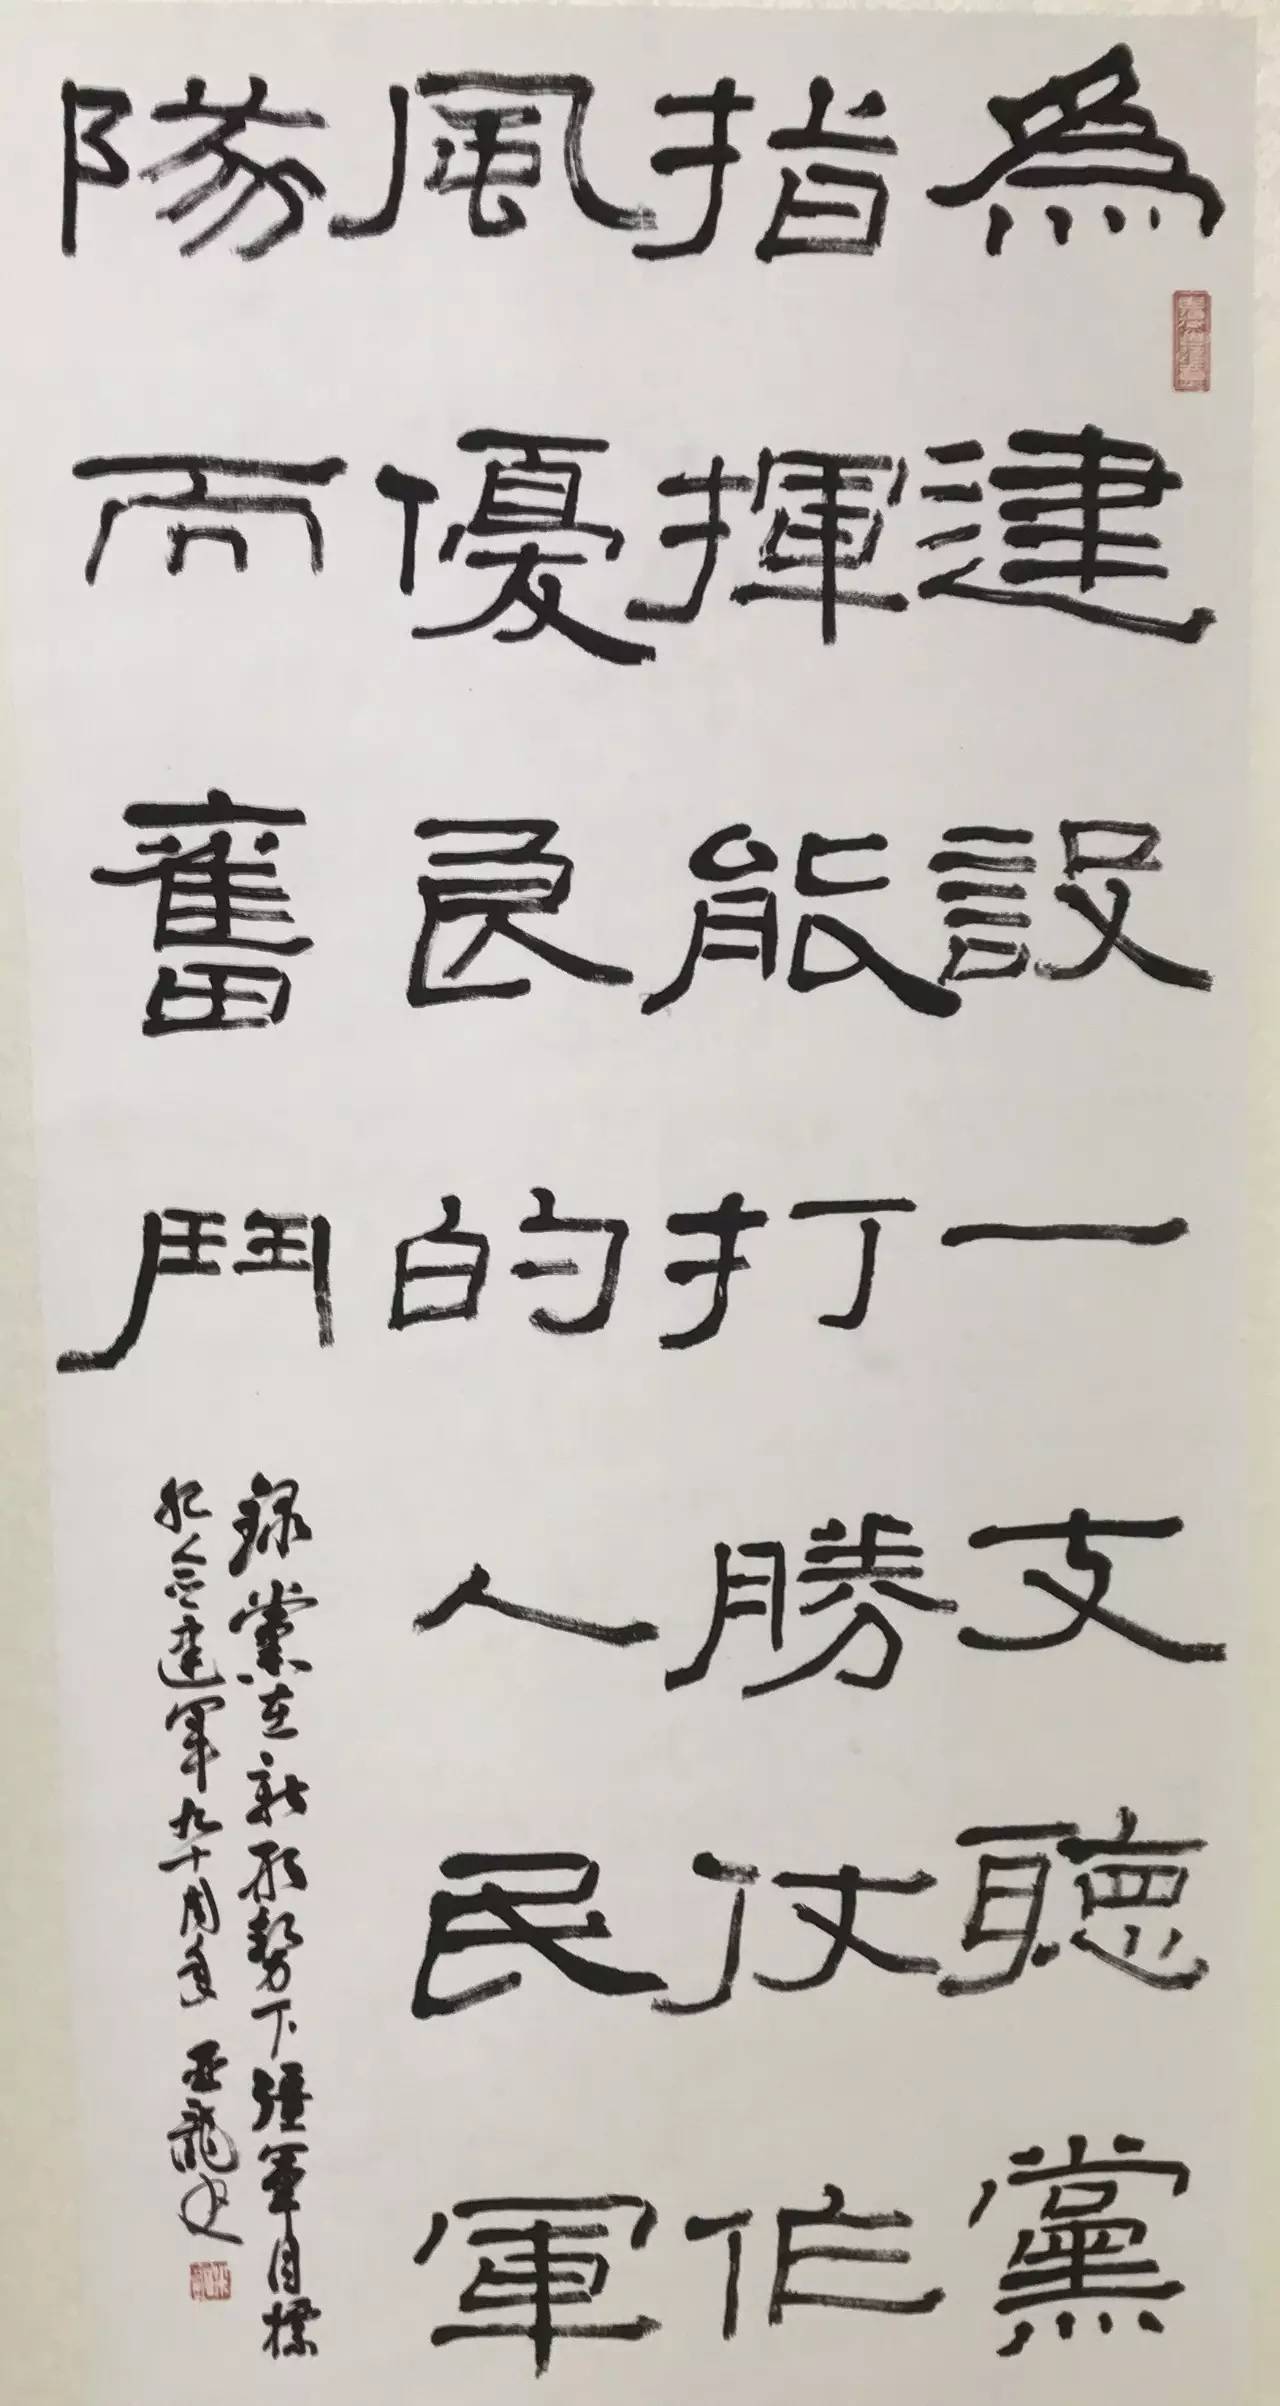 為建設一支聽黨
指揮能打勝仗作
風優良的人民軍
隊而奮鬥
錄黨在新形勢下強軍目標
紀念建軍九十周年 亚龍